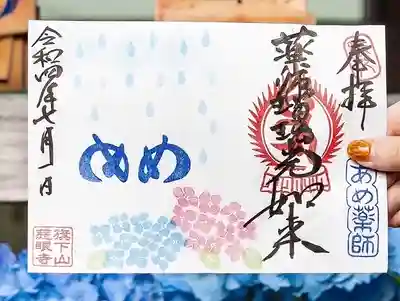 奉拝
薬師瑠璃光如来
あめ薬師
めめ
令和四年七月一日
旗下山
莊眼寺